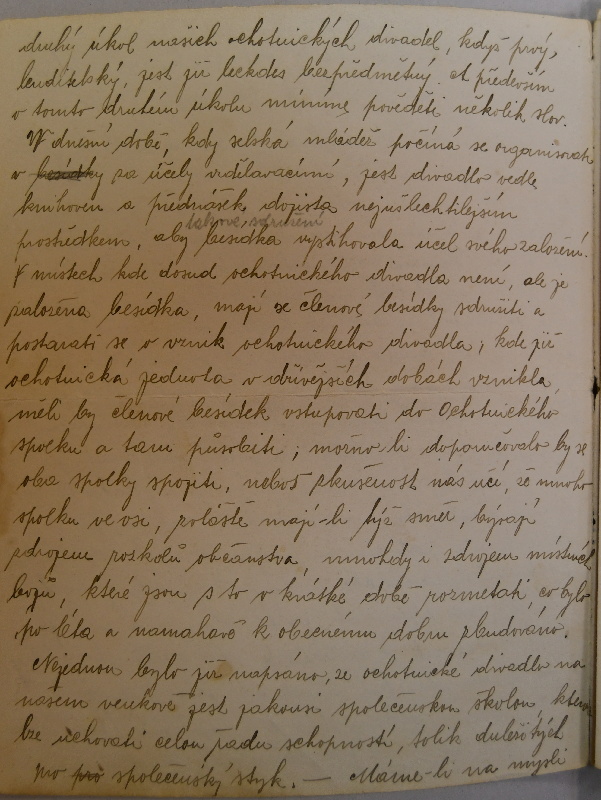 druhý úkol našich ochotnických divadel, když prvý,
buditelský, jest již leckdes bezpředmětný. A především
o tomto druhém úkolu míníme pověděti několik slov.
V dnešní době, kdy selská mládež počíná se organisovati
v besídky za účely vzdělávacími, jest divadlo vedle
knihoven a přednášek dojista nejušlechtilejším
takové sdružení
prostředkem, aby besídka vystihovala účel svého založení.
V místech kde dosud ochotnického divadla není, ale je
založena besídka, mají se členové besídky sdružiti a
postarati se o vznik ochotnického divadla; kde již
ochotnická jednota v dřívějších dobách vznikla,
měli by členové besídek vstupovati do Ochotnického
spolku a tam působiti; možno-li doporučovalo by se
oba spolky spojiti, neboť zkušenost nás učí, že mnoho
spolků ve vsi, zvláště mají-li týž směr, bývají
zdrojem rozkolů občanstva, mnohdy i zdrojem místních
bojů, které jsou s to v krátké době rozmetati, co bylo
po léta a namahavě k obecnému dobru zbudováno.
Nejednou bylo již napsáno, že ochotnické divadlo na
našem venkově jest jakousi společenskou školou, která
lze uchovati celou řadu schopností, tolik důležitých
pro pro společenský styk. — Máme-li na mysli